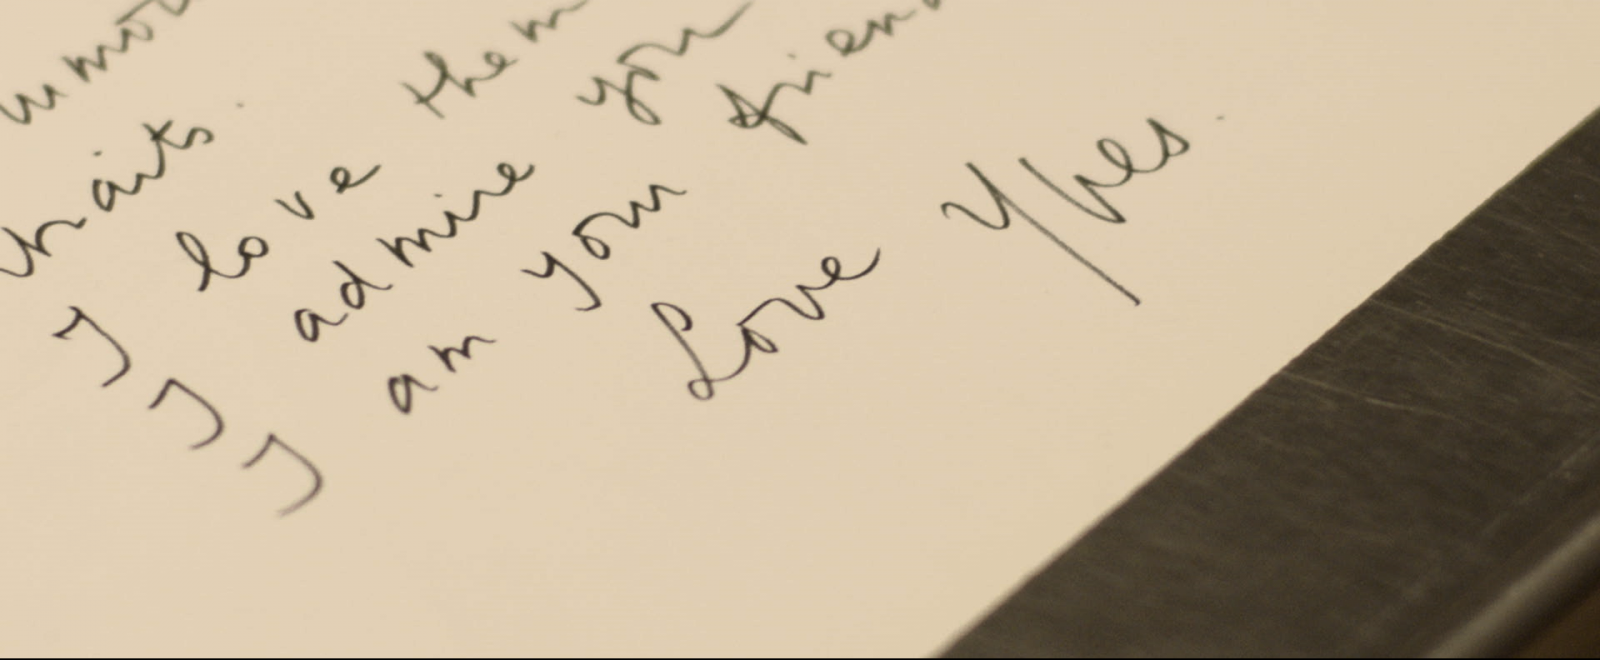 traits.
I love them
I admire you
I am your friend
Love Yves.